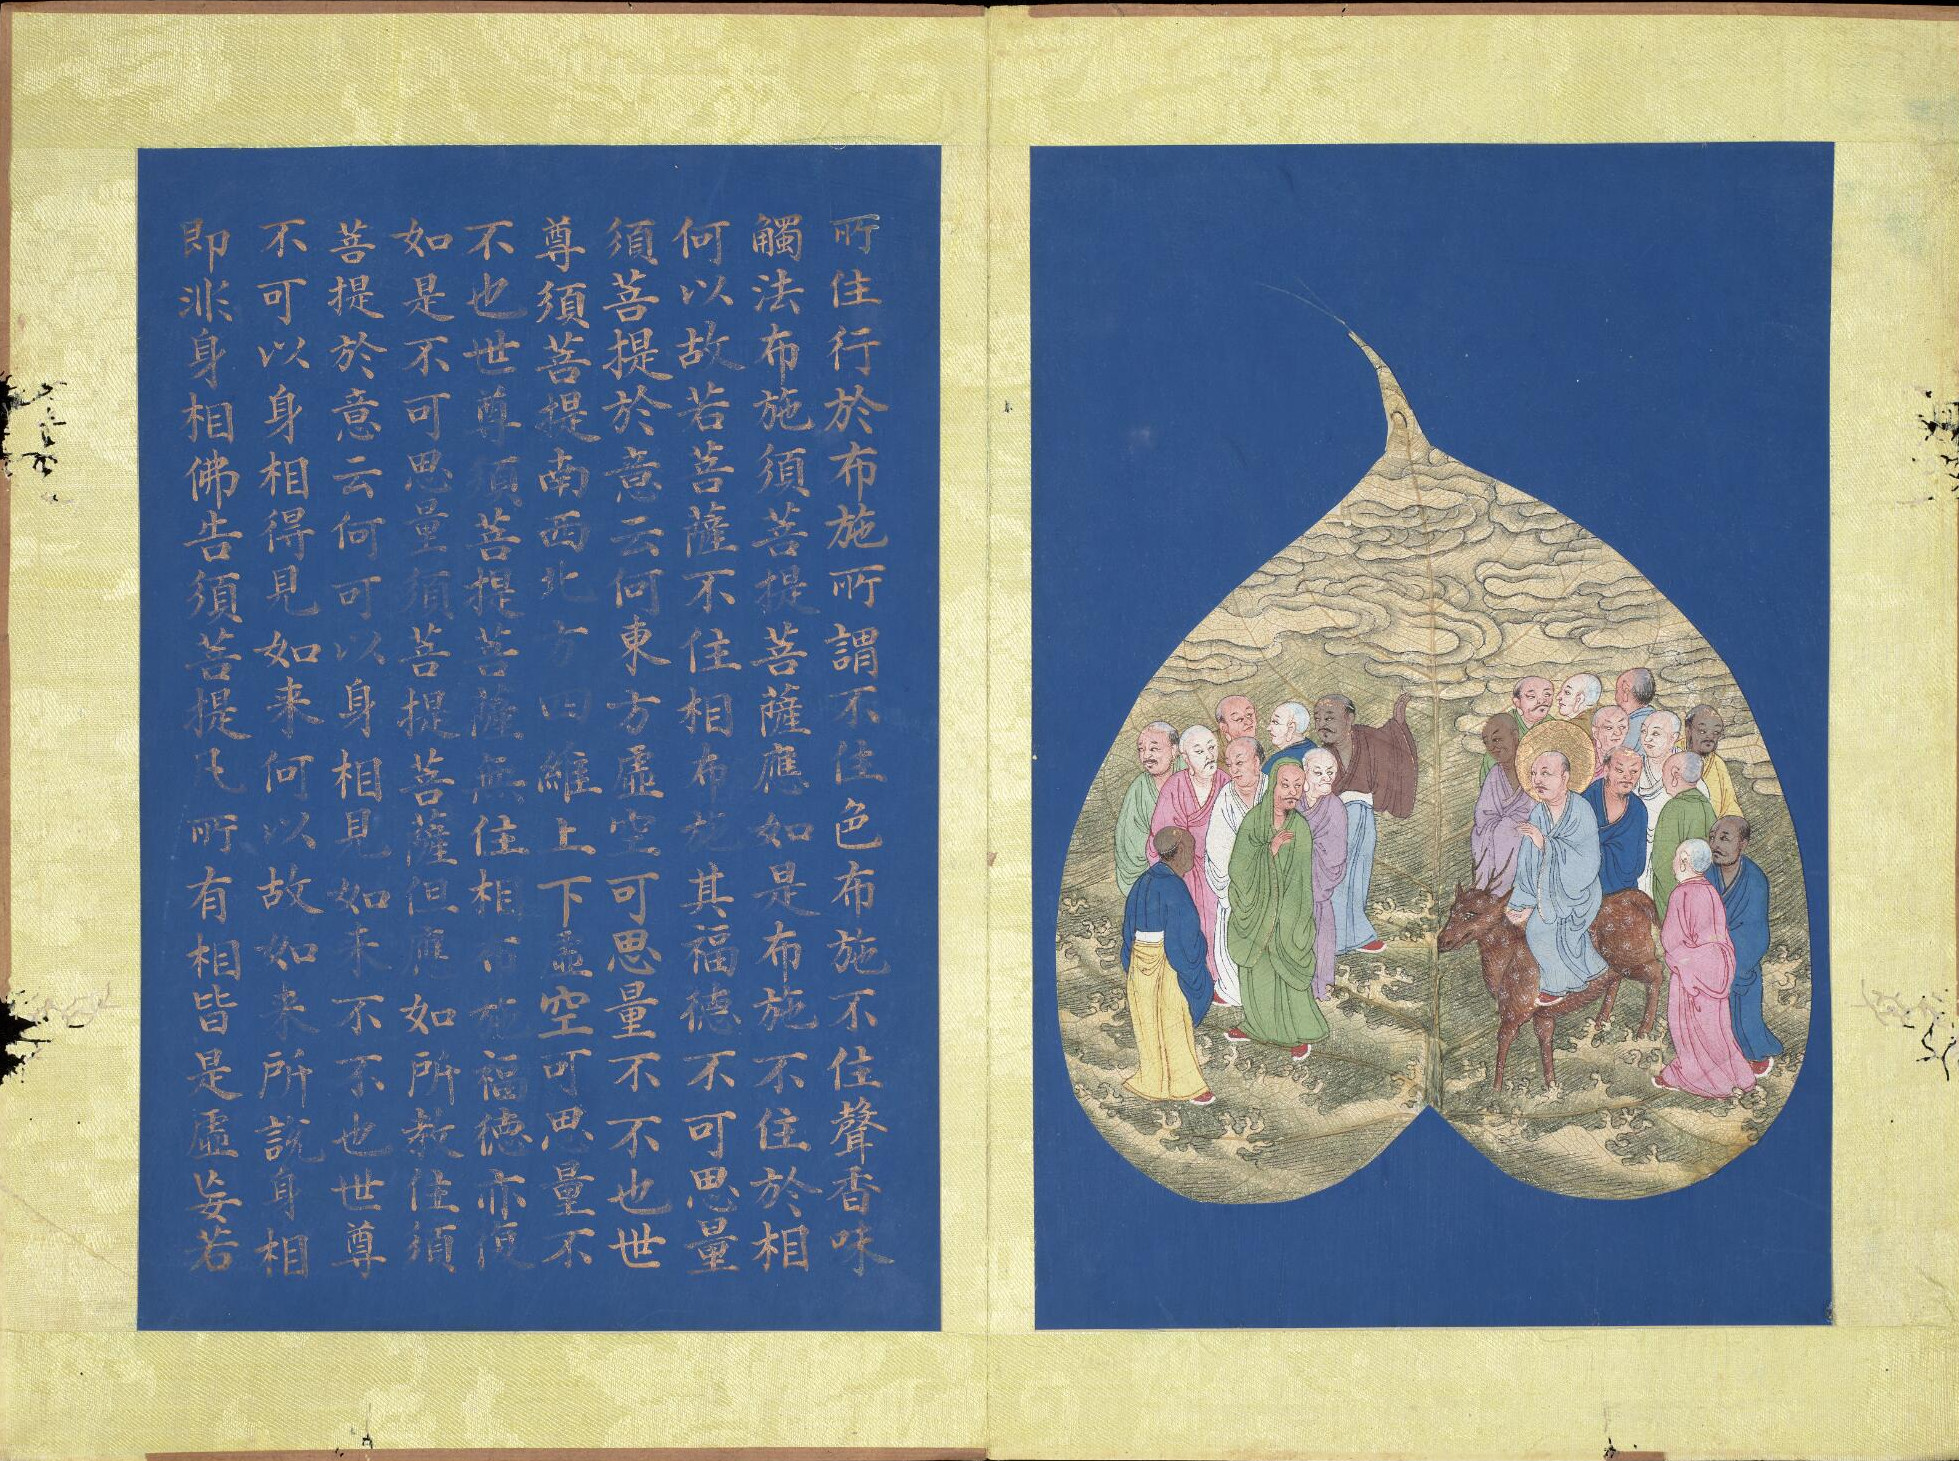 所住行於布施所謂不住色布施不住聲香味
觸法布施須菩提菩薩應如是布施不住於相
何以故若菩薩不住相布施其福德不可思量
須菩提於意云何東方虛空可思量不不也世
尊須菩提南西北方四維上下虛空可思量不
不也世尊須菩提菩薩無住相布施福德亦復
如是不可思量須菩提菩薩但應如所教住須
菩提於意云何可以身相見如来不不也世尊
不可以身相得見如来何以故如来所說身相
即非身相佛告須菩提凡所有相皆是虛妄若